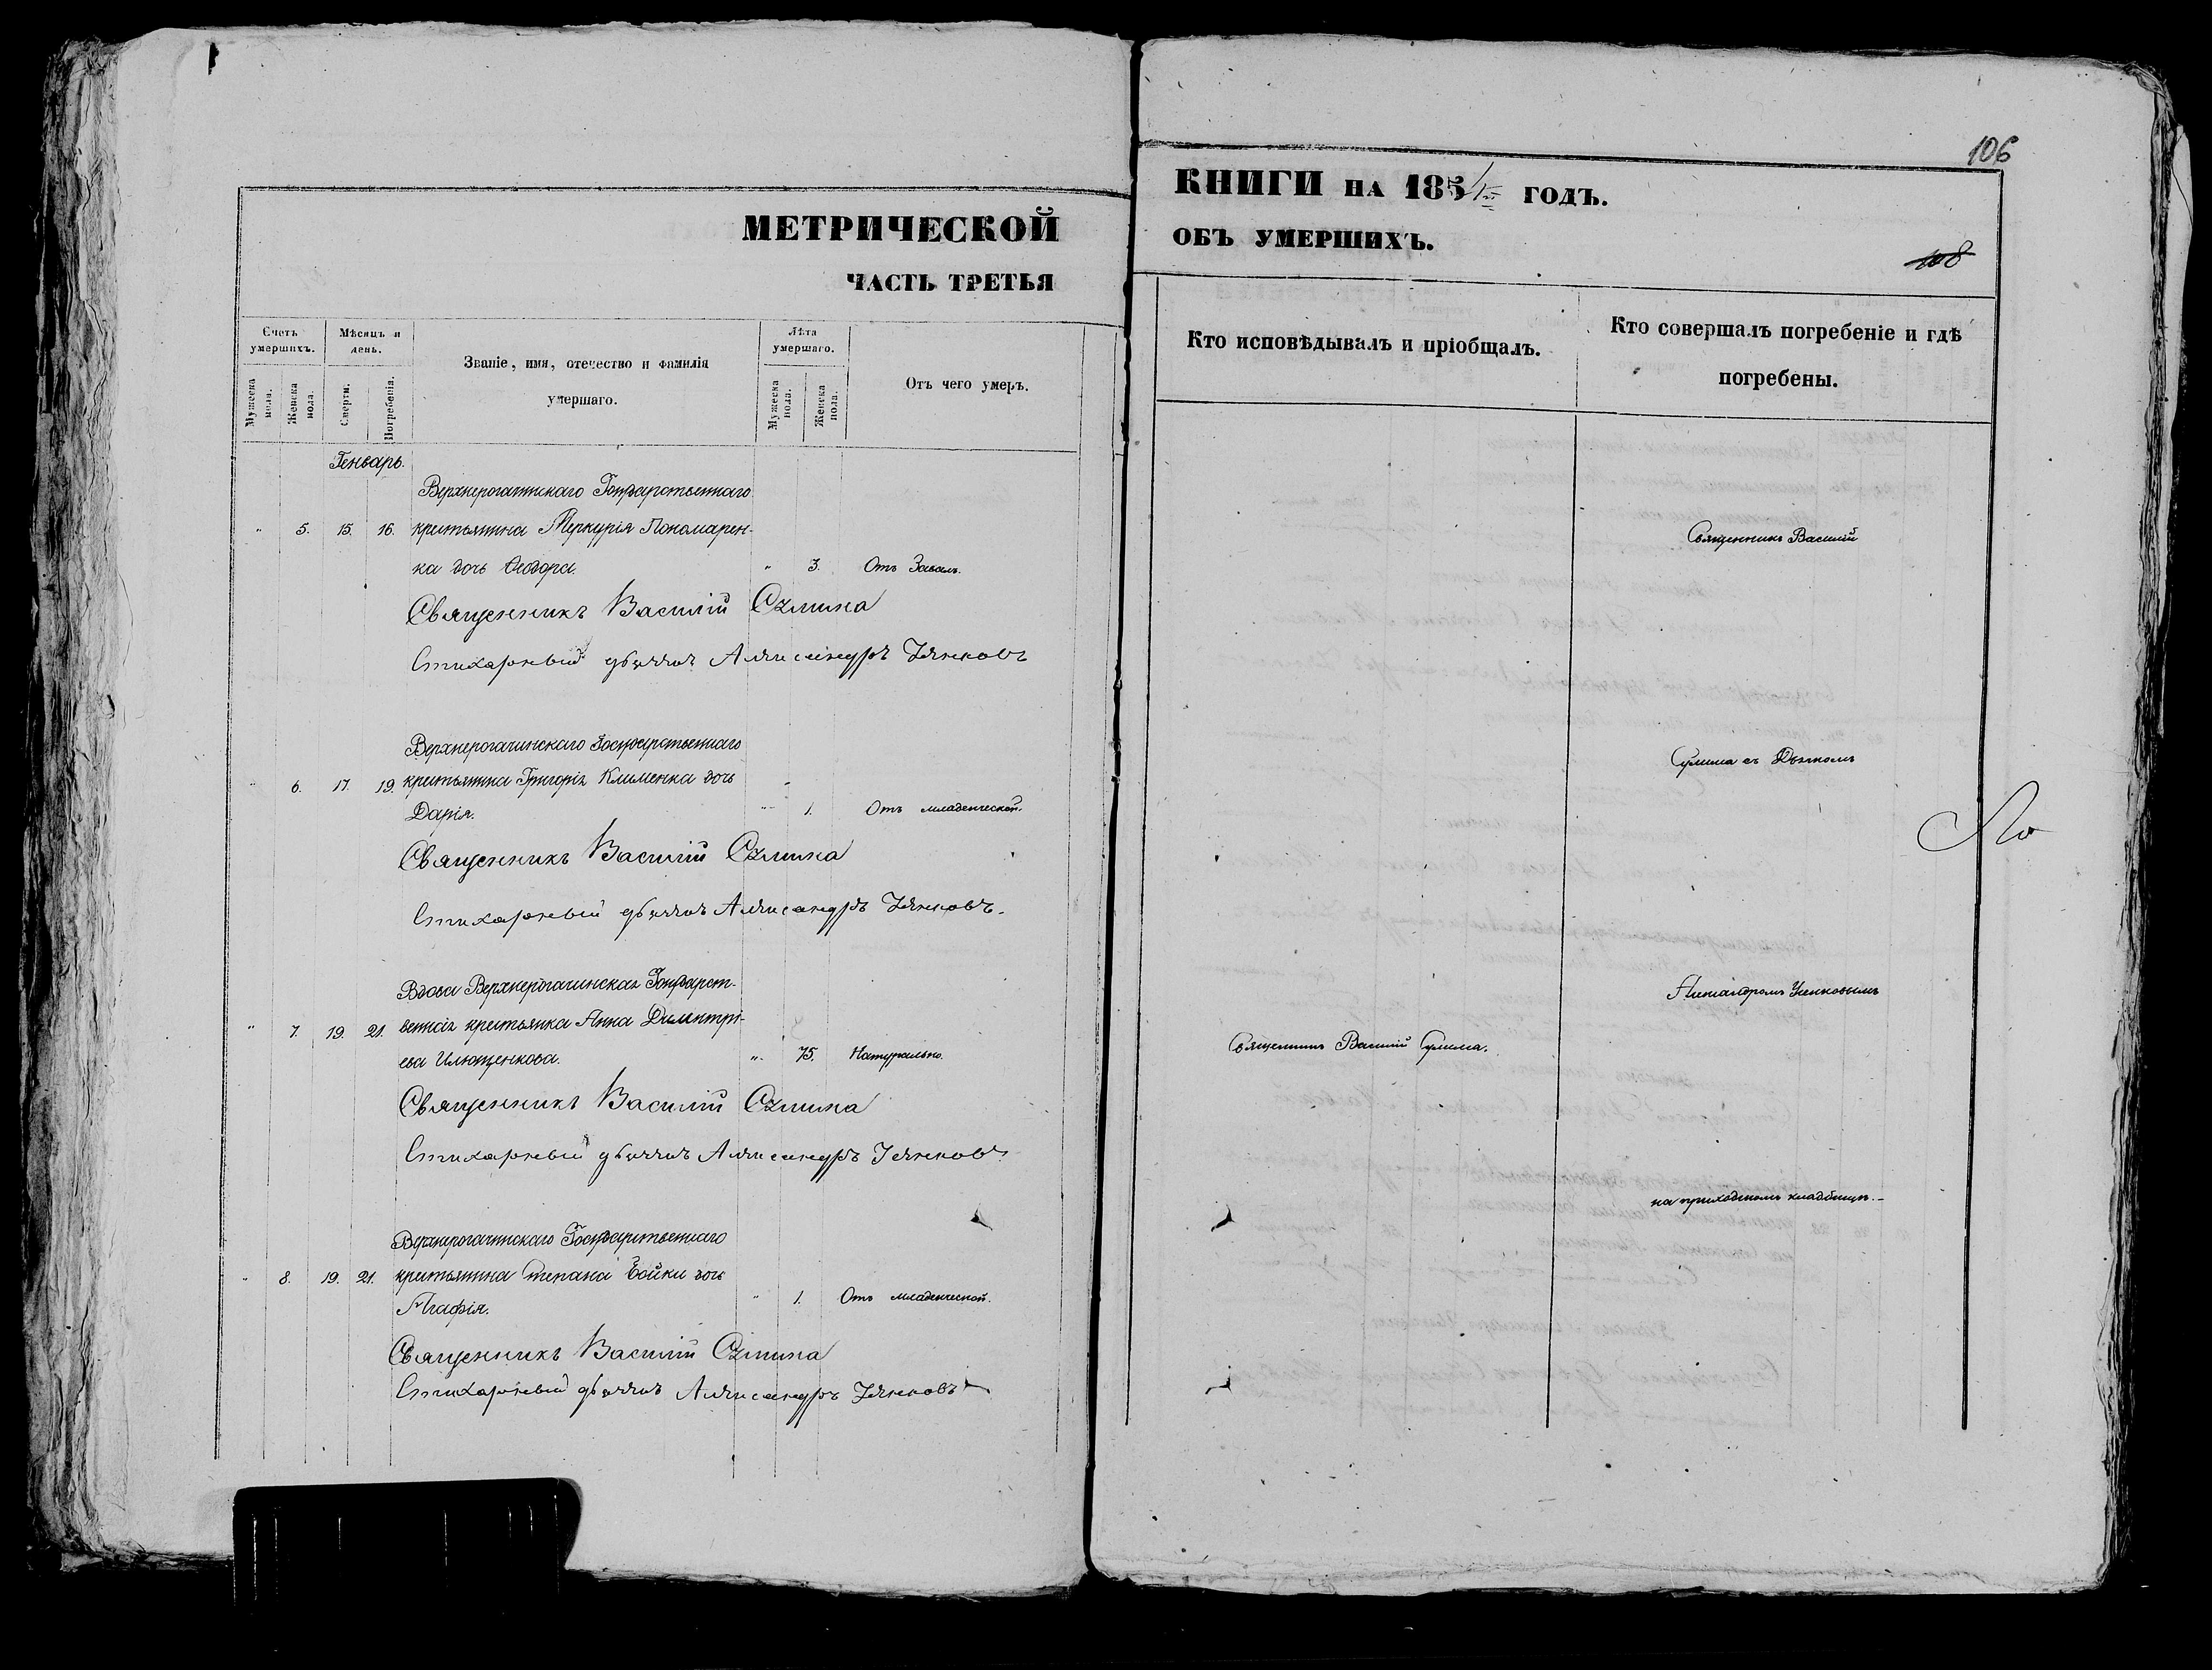 МЕТРИЧЕСКОЙ
ЧАСТЬ ТРЕТЬЯ
Счетъ умершихъ.
Мѣсяцъ и день.
Званіе, имя, отечество и фамилія умершаго.
Лѣта умершаго.
Отъ чего умеръ.
Мужеска пола.
Женска пола.
Смерти.
Погребенія.
Мужеска пола.
Женска пола.
Генварь.
Верхнерогачинскаго Государственнаго
" 5. 15. 16. крестьянина Меркурія Пономарен-
ка дочь Ѳеодора. " 3. Отъ
Священникъ Василій Сулима
Стихарный дьячокъ Александръ
Верхнерогачинскаго Государственнаго
" 6. 17. 19. крестьянина Григорія Клименка дочь
Дарія. " 1. Отъ младенческой.
Священникъ Василій Сулима
Стихарный дьячокъ Александръ
Вдова Верхнерогачинская Государст-
" 7. 19. 21. венная крестьянка Анна Димитрі-
ева Илющенкова. " 75. Натурально.
Священникъ Василій Сулима
Стихарный дьячокъ Александръ
Верхнерогачинскаго Государственнаго
" 8. 19. 21. крестьянина Степана Бойка дочь
Агафія. " 1. Отъ младенческой.
Священникъ Василій Сулима
Стихарный дьячокъ Александръ
106
КНИГИ НА 1851 ГОДЪ.
ОБЪ УМЕРШИХЪ.
108
Кто исповѣдывалъ и пріобщалъ.
Кто совершалъ погребеніе и гдѣ погребены.
Священникъ Василій
Сулима съ Дьячкомъ
Александромъ
Священникъ Василій Сулима.
на приходскомъ кладбищѣ.-
По